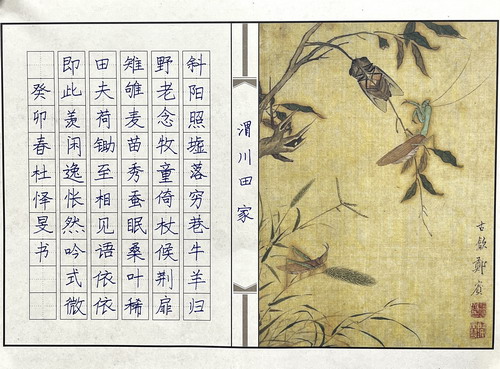 渭川田家
斜阳照墟落穷巷牛羊归
野老念牧童倚杖候荆扉
雉雊麦苗秀蚕眠桑叶稀
田夫荷锄至相见语依依
即此羡闲逸怅然吟式微
癸卯春杜怿旻书